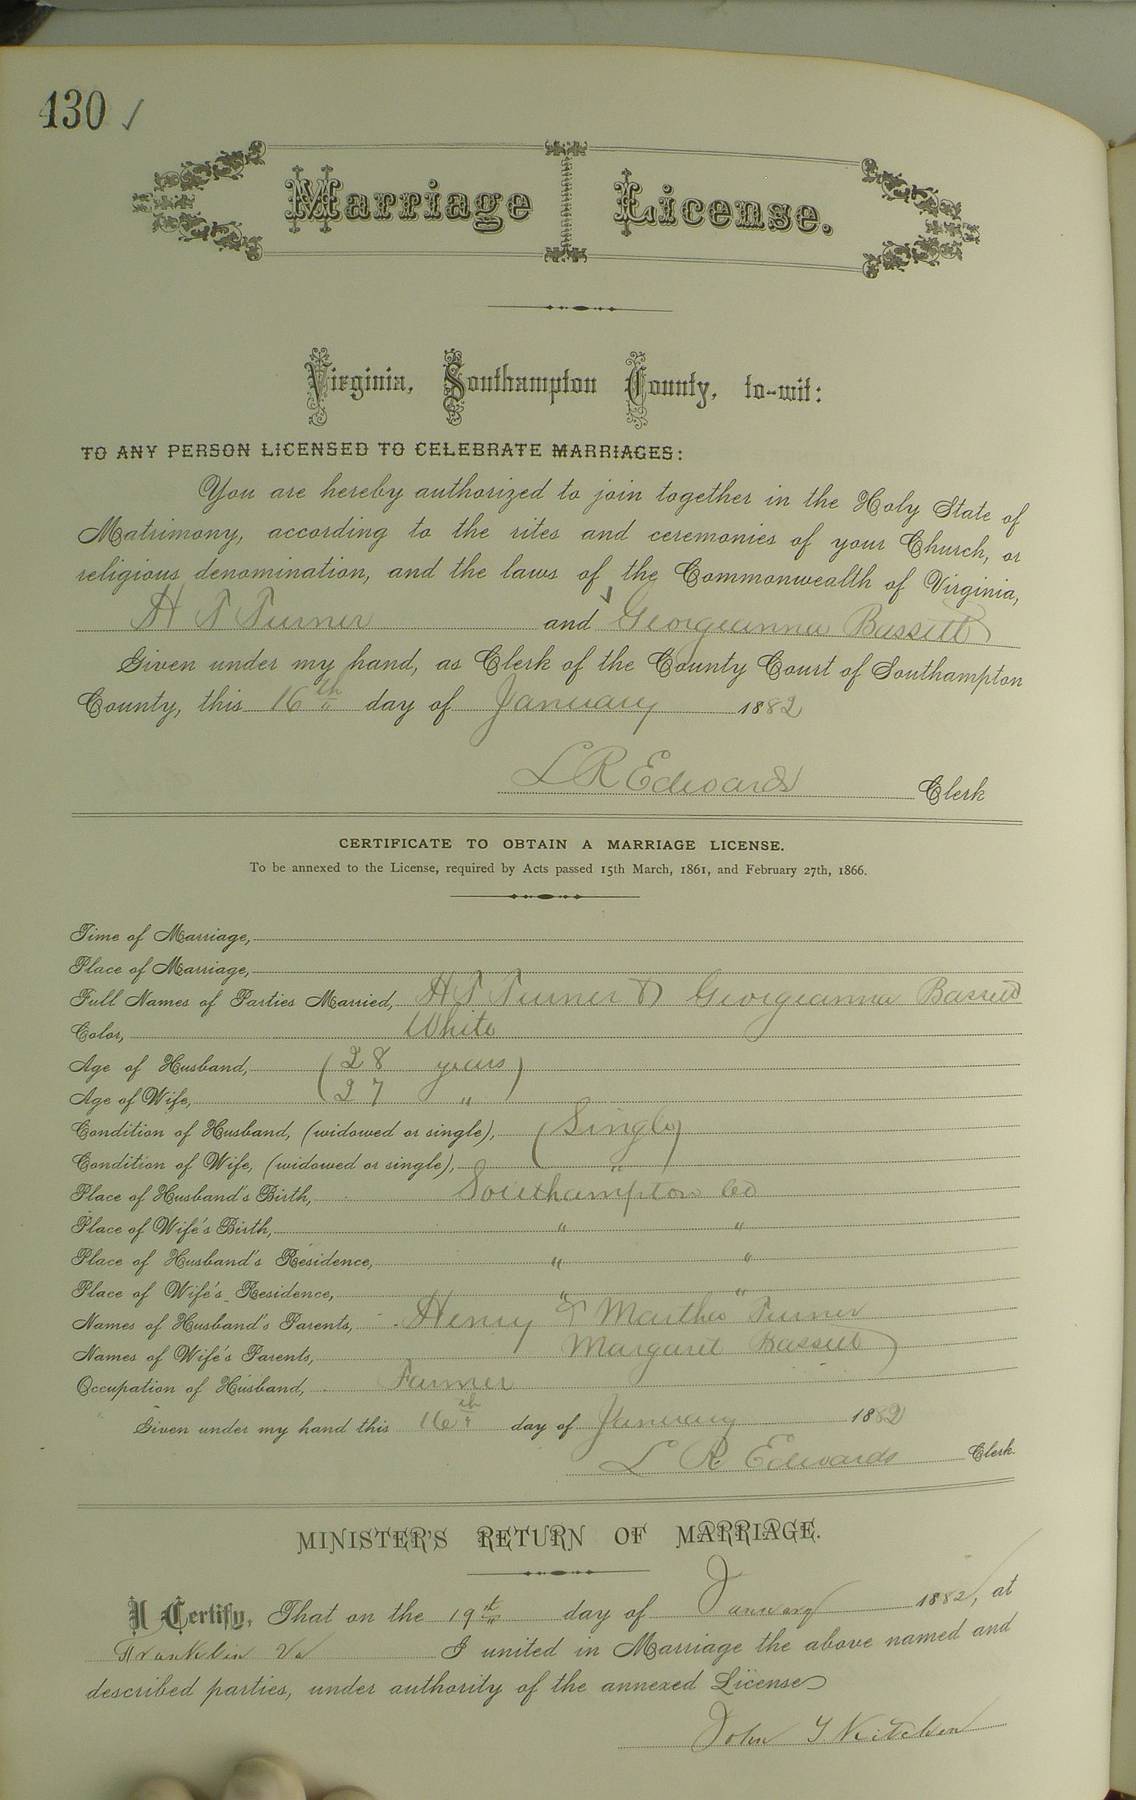 430 ✓
Marriage License.
Virginia, Southampton County, to-wit:
TO ANY PERSON LICENSED TO CELEBRATE MARRIAGES:
You are hereby authorized to join together in the Holy State of
Matrimony, according to the rites and ceremonies of your Church, or
religious denomination, and the laws of the Commonwealth of Virginia,
H T Turner and Georgeanna Bassett
Given under my hand, as Clerk of the County Court of Southampton
County, this 16th day of January 1882
L R Edwards Clerk
CERTIFICATE TO OBTAIN A MARRIAGE LICENSE.
To be annexed to the License, required by Acts passed 15th March, 1861, and February 27th, 1866.
Time of Marriage,
Place of Marriage,
Full Names of Parties Married, H T Turner & Georgeanna Bassett
Color, White
Age of Husband, 28 years
Age of Wife, 27 "
Condition of Husband, (widowed or single), Single
Condition of Wife, (widowed or single), "
Place of Husband's Birth, Southampton Co
Place of Wife's Birth, " "
Place of Husband's Residence, " "
Place of Wife's Residence, " "
Names of Husband's Parents, Henry & Martha Turner
Names of Wife's Parents, Margaret Bassett
Occupation of Husband, Farmer
Given under my hand this 16th day of January 1882
L R. Edwards Clerk.
MINISTER'S RETURN OF MARRIAGE.
I Certify, That on the 19th day of January 1882, at
Franklin Va I united in Marriage the above named and
described parties, under authority of the annexed License
John T Kitchen